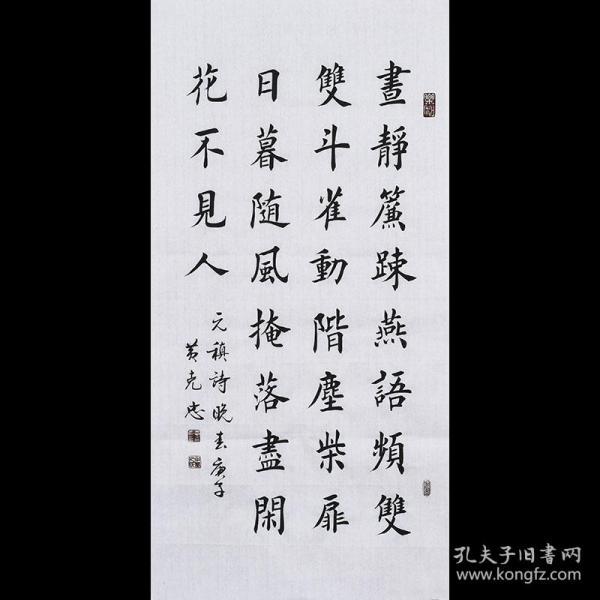 晝靜簾踈燕語頻雙
雙斗雀動階塵柴扉
日暮随風掩落盡閑
花不見人
元稹詩晚春庚子
黄克忠
孔夫子旧书网
www.kongfz.com